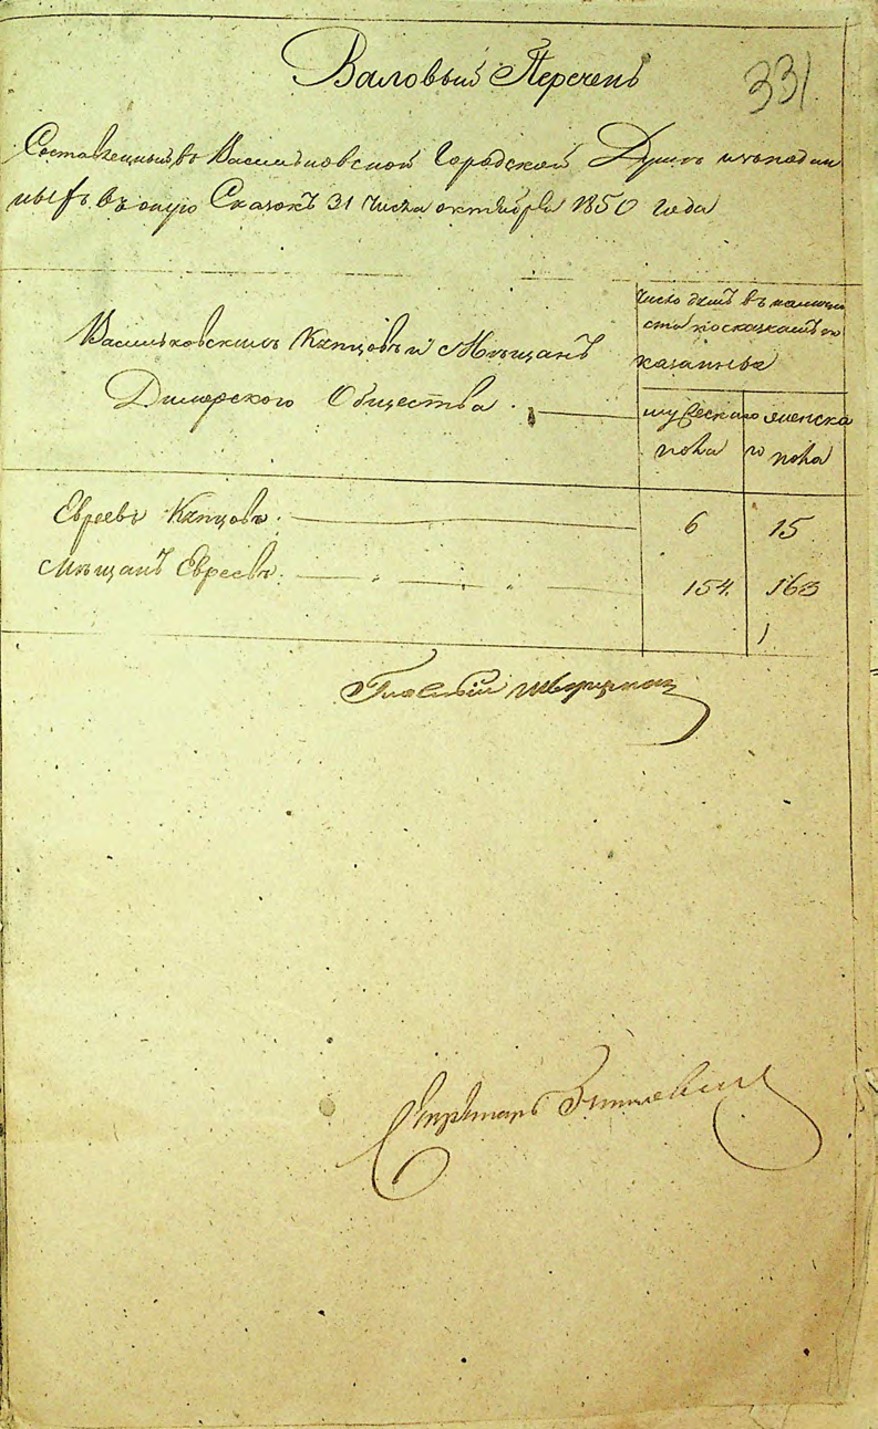 Валовый Перечень
331
Составленный въ Васильковской Городской Думѣ изъ подан
ныхъ въ оную Сказокъ 31 числа октября 1850 года
Васильковскимъ Купцовъ и Мѣщанъ
Димерского Общества
число душъ въ налично
сти по сказкамъ по
казанныхъ
мужескаго пола
женска
го пола
Евреевъ Купцовъ. 6 15
Мѣщанъ Евреевъ. 154. 163
Гласный
Секретарь